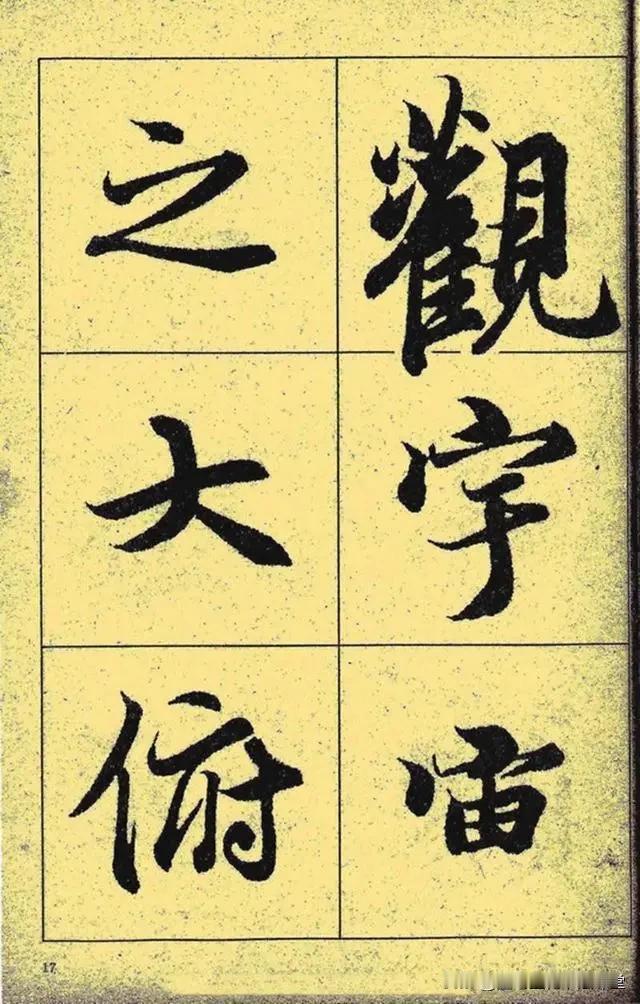 觀宇宙
之大俯
17